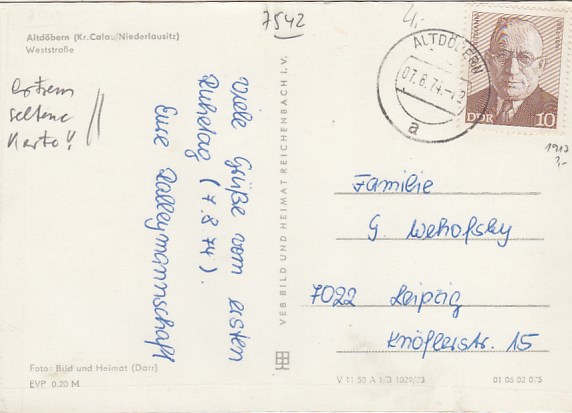 7542
Altdöbern (Kr. Calau/Niederlausitz)
Weststraße
extrem
seltene
Karte!!
Viele Grüße vom ersten
Ruhetag (7.8.74).
Eure Ralleymannschaft
VEB BILD UND HEIMAT REICHENBACH I. V.
ALTDÖBERN
07.8.74
a
DDR
10
Familie
G.
7022 Leipzig
Knöflerstr. 15
Foto: Bild und Heimat (Darr)
EVP 0,20 M
V 11 50 A 1/B 1029/73
01 06 02 075